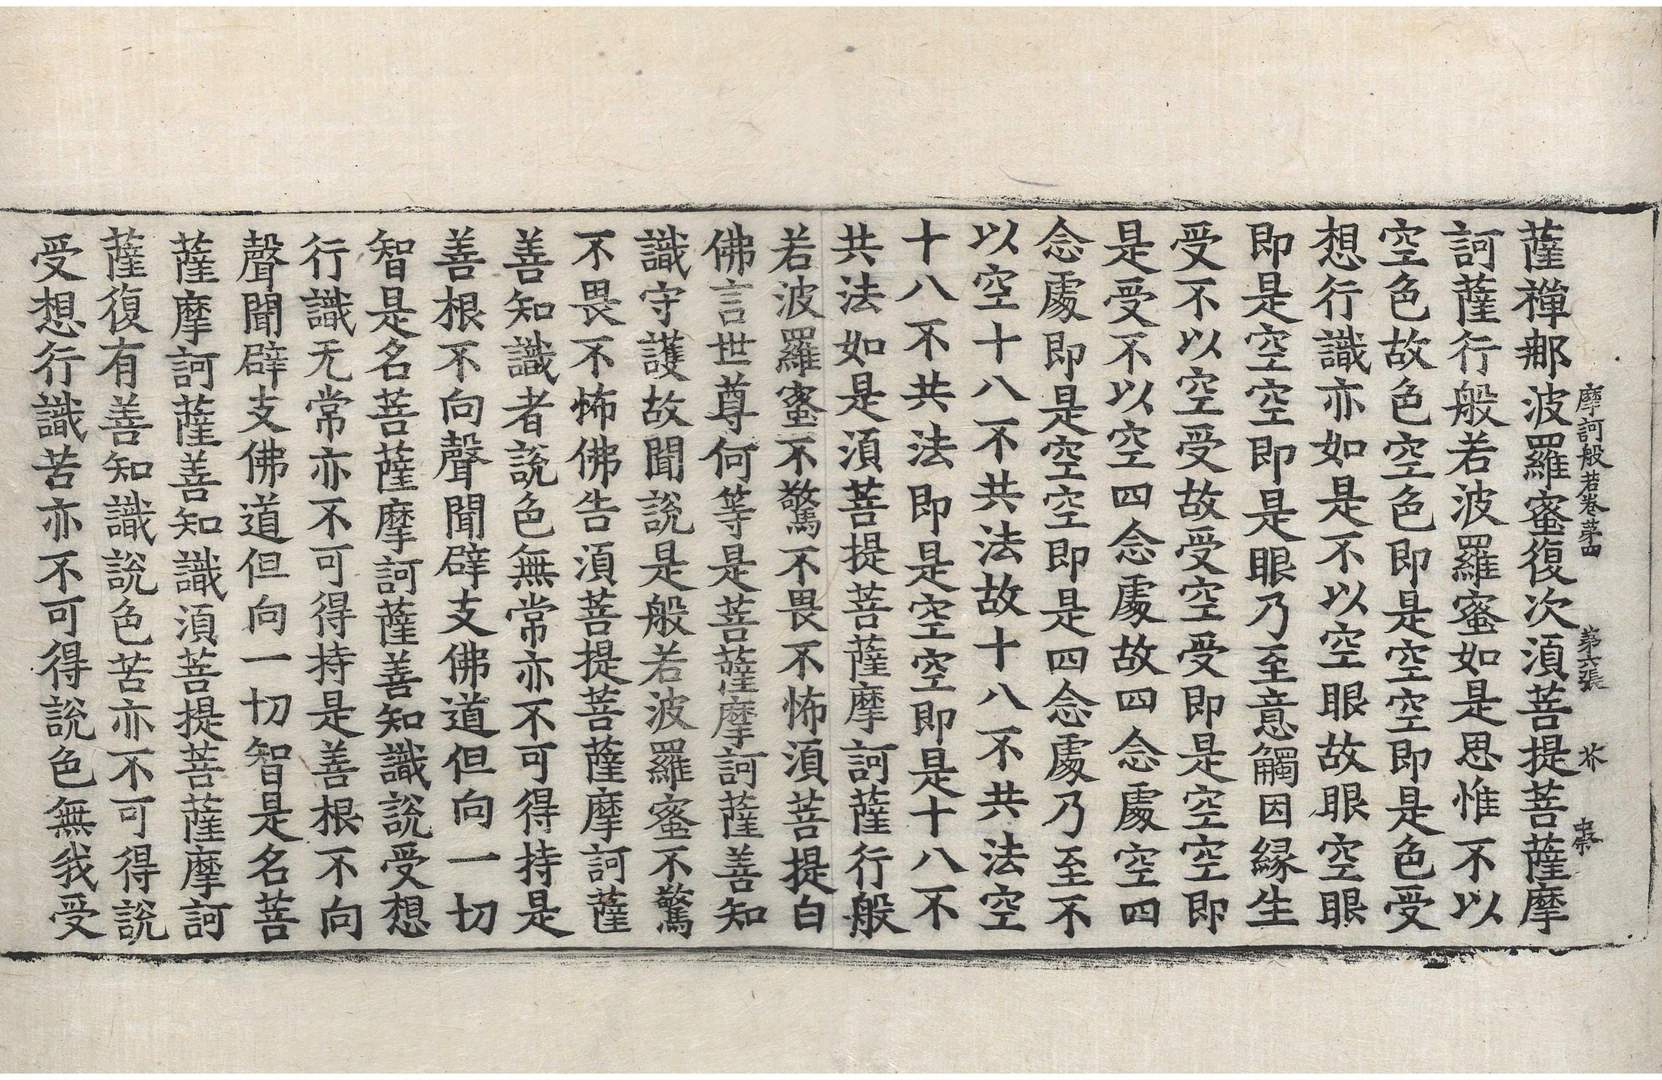 摩訶般若卷第四　第六張　芥
薩禪那波羅蜜復次湏菩提菩薩摩
訶薩行般若波羅蜜如是思惟不以
空色故色空色即是空空即是色受
想行識亦如是不以空眼故眼空眼
即是空空即是眼乃至意觸因緣生
受不以空受故受空受即是空空即
是受不以空四念處故四念處空四
念處即是空空即是四念處乃至不
以空十八不共法故十八不共法空
十八不共法即是空空即是十八不
共法如是湏菩提菩薩摩訶薩行般
若波羅蜜不驚不畏不怖湏菩提白
佛言世尊何等是菩薩摩訶薩善知
識守護故聞說是般若波羅蜜不驚
不畏不怖佛告湏菩提菩薩摩訶薩
善知識者說色無常亦不可得持是
善根不向聲聞辟支佛道但向一切
智是名菩薩摩訶薩善知識說受想
行識无常亦不可得持是善根不向
聲聞辟支佛道但向一切智是名菩
薩摩訶薩善知識湏菩提菩薩摩訶
薩復有善知識說色苦亦不可得說
受想行識苦亦不可得說色無我受